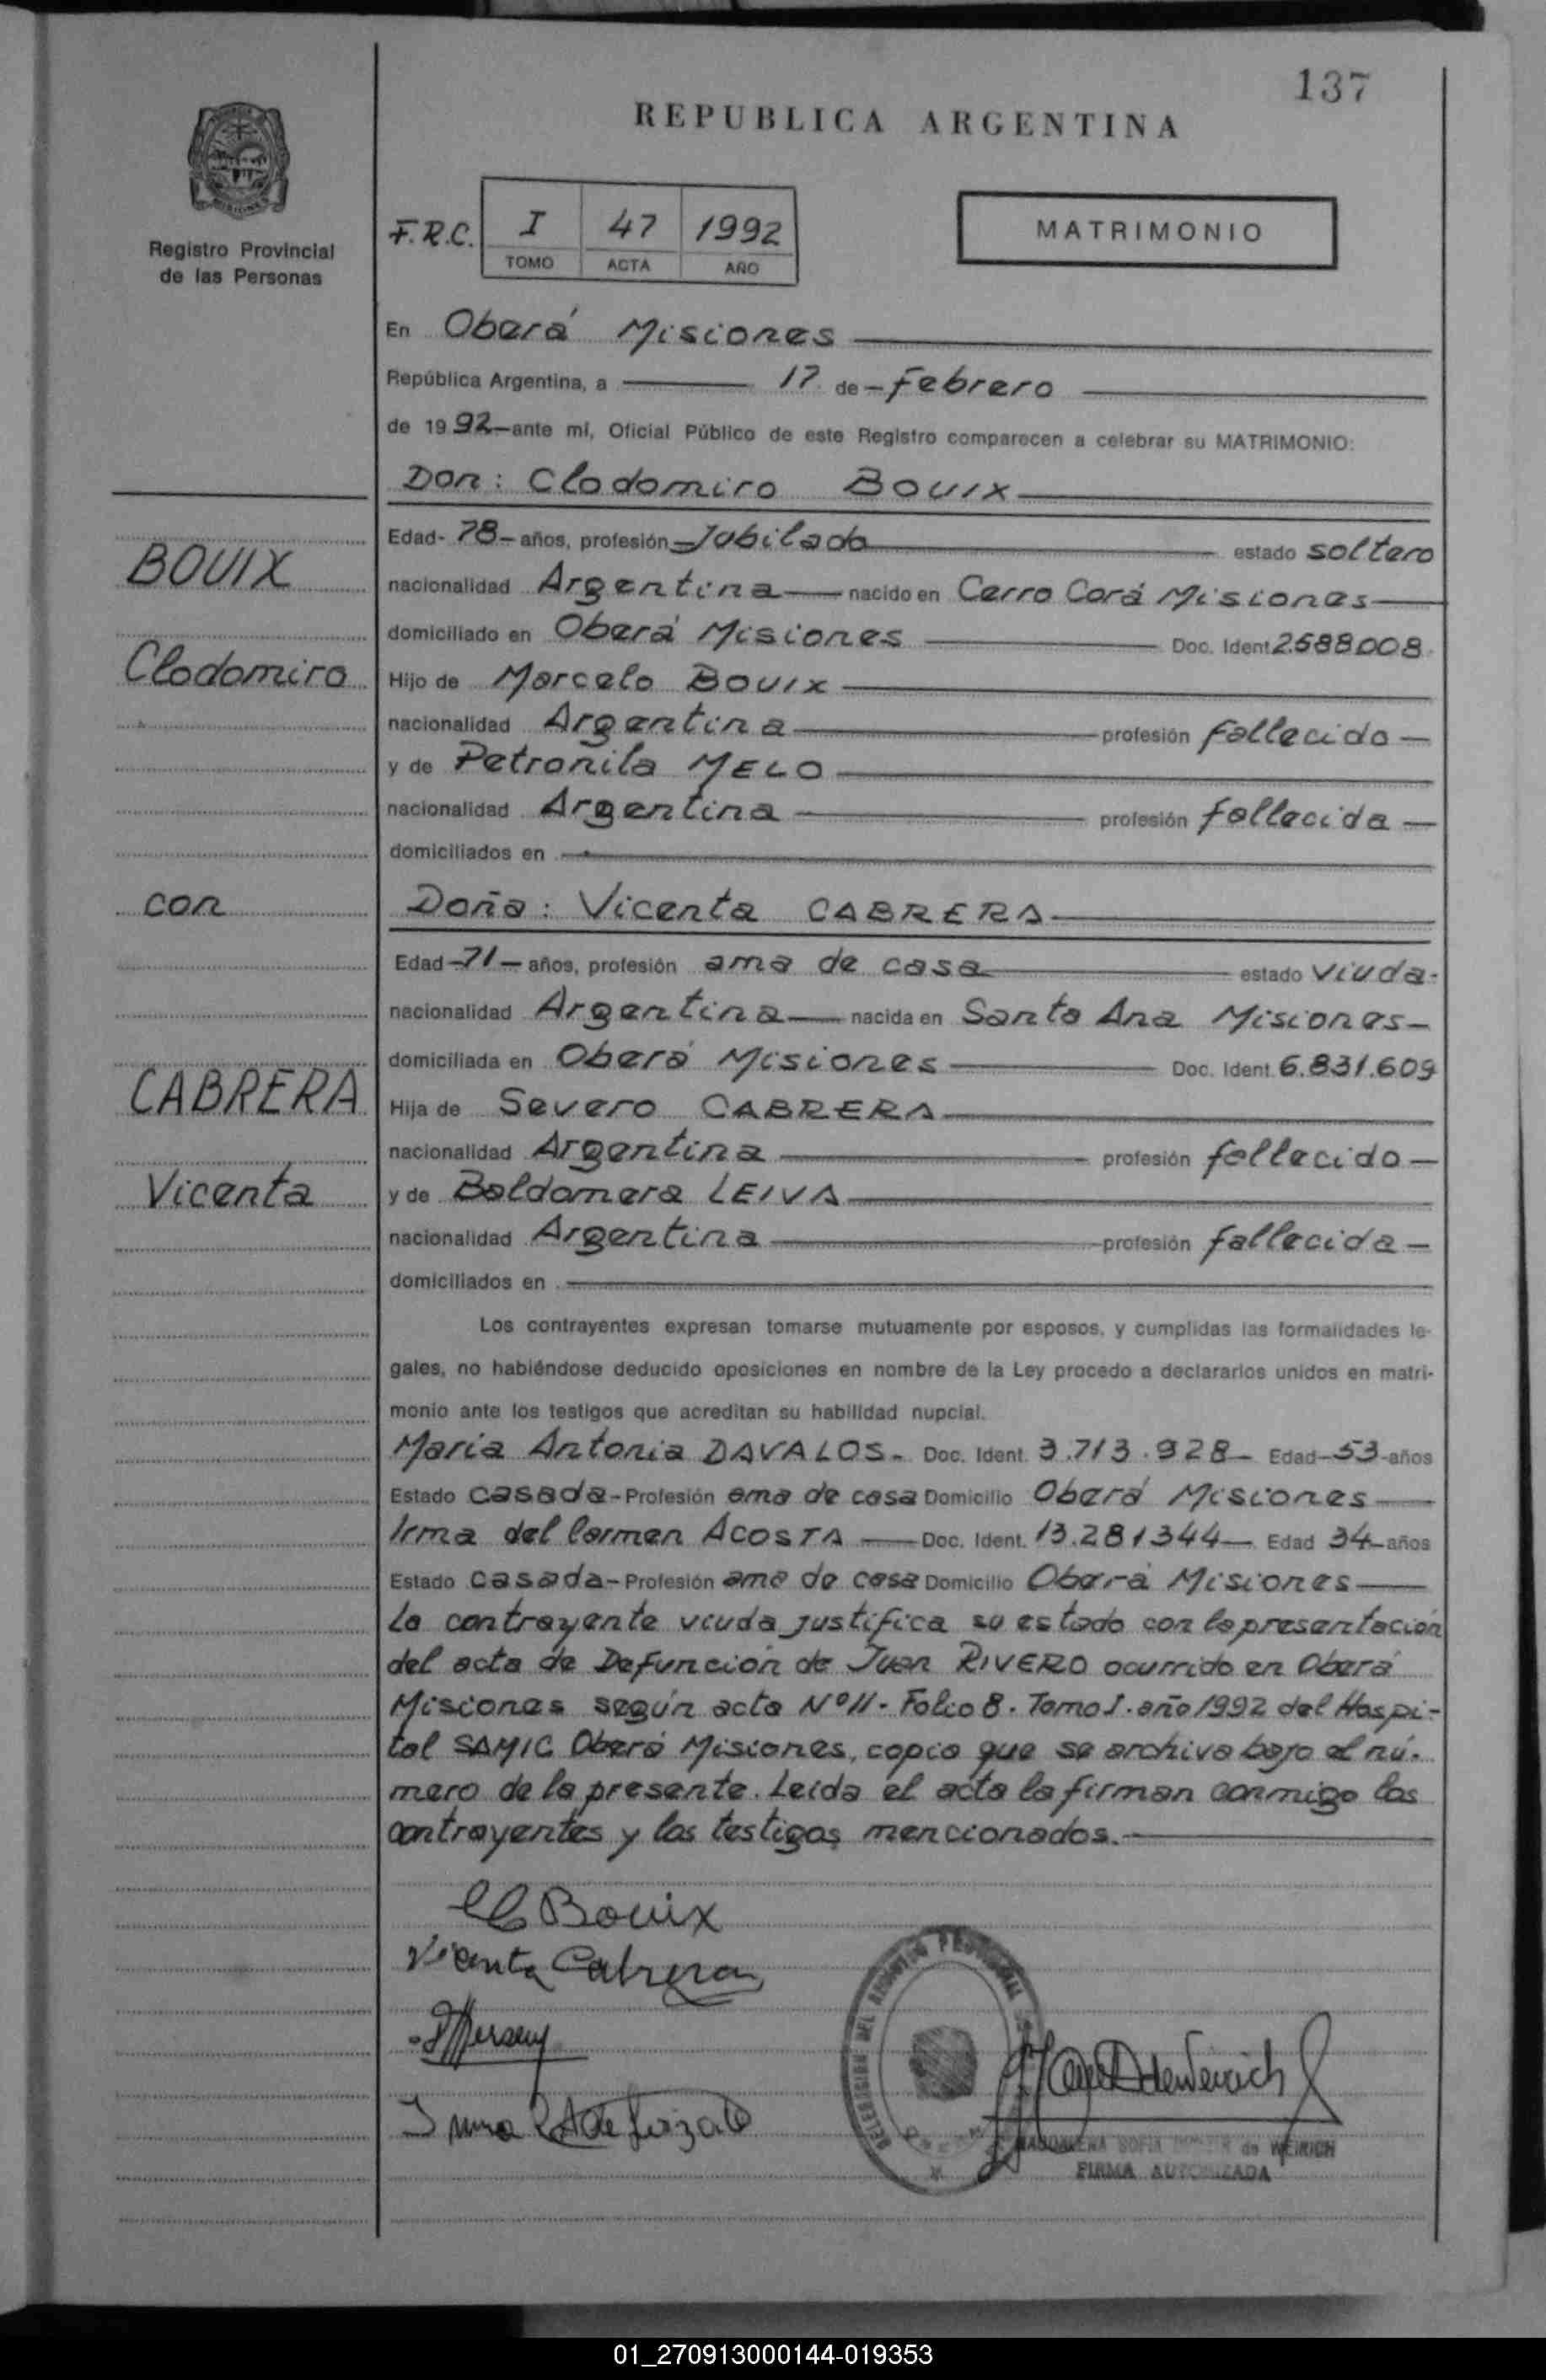 137
REPUBLICA ARGENTINA
Registro Provincial
de las Personas
F.R.C. I 47 1992
TOMO ACTA AÑO
MATRIMONIO
En Oberá Misiones
República Argentina, a 17 de Febrero
de 1992 ante mí, Oficial Público de este Registro comparecen a celebrar su MATRIMONIO:
Don: Clodomiro BOUIX
Edad 78 años, profesión Jubilado estado soltero
BOUIX
nacionalidad Argentina nacido en Cerro Corá Misiones
domiciliado en Oberá Misiones Doc. Ident 2.588.008
Clodomiro
Hijo de Marcelo BOUIX
nacionalidad Argentina profesión fallecido
y de Petronila MELO
nacionalidad Argentina profesión fallecida
domiciliados en
con
Doña: Vicenta CABRERA
Edad 71 años, profesión ama de casa estado viuda
nacionalidad Argentina nacida en Santa Ana Misiones
domiciliada en Oberá Misiones Doc. Ident 6.831.609
CABRERA
Hija de Severo CABRERA
nacionalidad Argentina profesión fallecido
Vicenta
y de Baldomera LEIVA
nacionalidad Argentina profesión fallecida
domiciliados en
Los contrayentes expresan tomarse mutuamente por esposos, y cumplidas las formalidades le-
gales, no habiéndose deducido oposiciones en nombre de la Ley procedo a declararlos unidos en matri-
monio ante los testigos que acreditan su habilidad nupcial.
Maria Antonia DAVALOS. Doc. Ident. 3.713.928 Edad 53 años
Estado casada Profesión ama de casa Domicilio Oberá Misiones
Irma del Carmen ACOSTA Doc. Ident. 13.281344 Edad 34 años
Estado casada Profesión ama de casa Domicilio Oberá Misiones
La contrayente viuda justifica su estado con la presentación
del acta de Defunción de Juan RIVERO ocurrido en Oberá
Misiones según acta Nº 11 - Folio 8. Tomo I. año 1992 del Hospi-
tal SAMIC Oberá Misiones, copia que se archiva bajo el nú-
mero de la presente. Leida el acta la firman conmigo los
contrayentes y los testigos mencionados.
Cl Bouix
Vicenta Cabrera
Irma
DELEGACION DEL REGISTRO PROVINCIAL
MAGDALENA SOFIA de WEIRICH
FIRMA AUTORIZADA
01_270913000144-019353